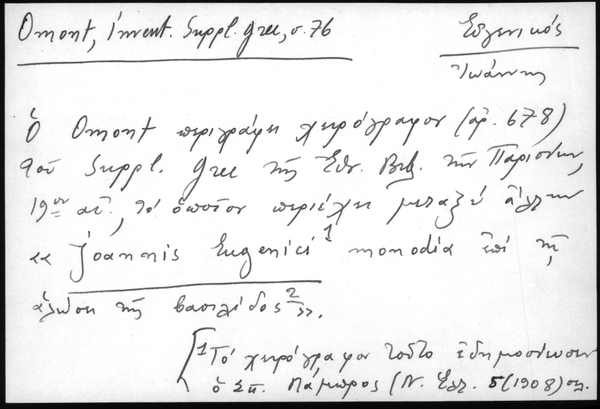 Omont, Invent. Suppl. grec, σ. 76
Εὐγενικός
Ἰωάννης
Ὁ Omont περιγράφει χειρόγραφον (ἀρ. 678)
τοῦ Suppl. grec τῆς Ἐθν. Βιβ. τῶν Παρισίων,
19ου αἰ., τὸ ὁποῖον περιέχει μεταξὺ ἄλλων
«Joannis Eugenici 1 monodia ἐπὶ τῇ
ἁλώσει τῆς βασιλίδος 2».
[1 Τὸ χειρόγραφον τοῦτο ἐδημοσίευσεν
ὁ Σπ. Λάμπρος (Ν. Ἑλλ. 5 (1908) σλ.